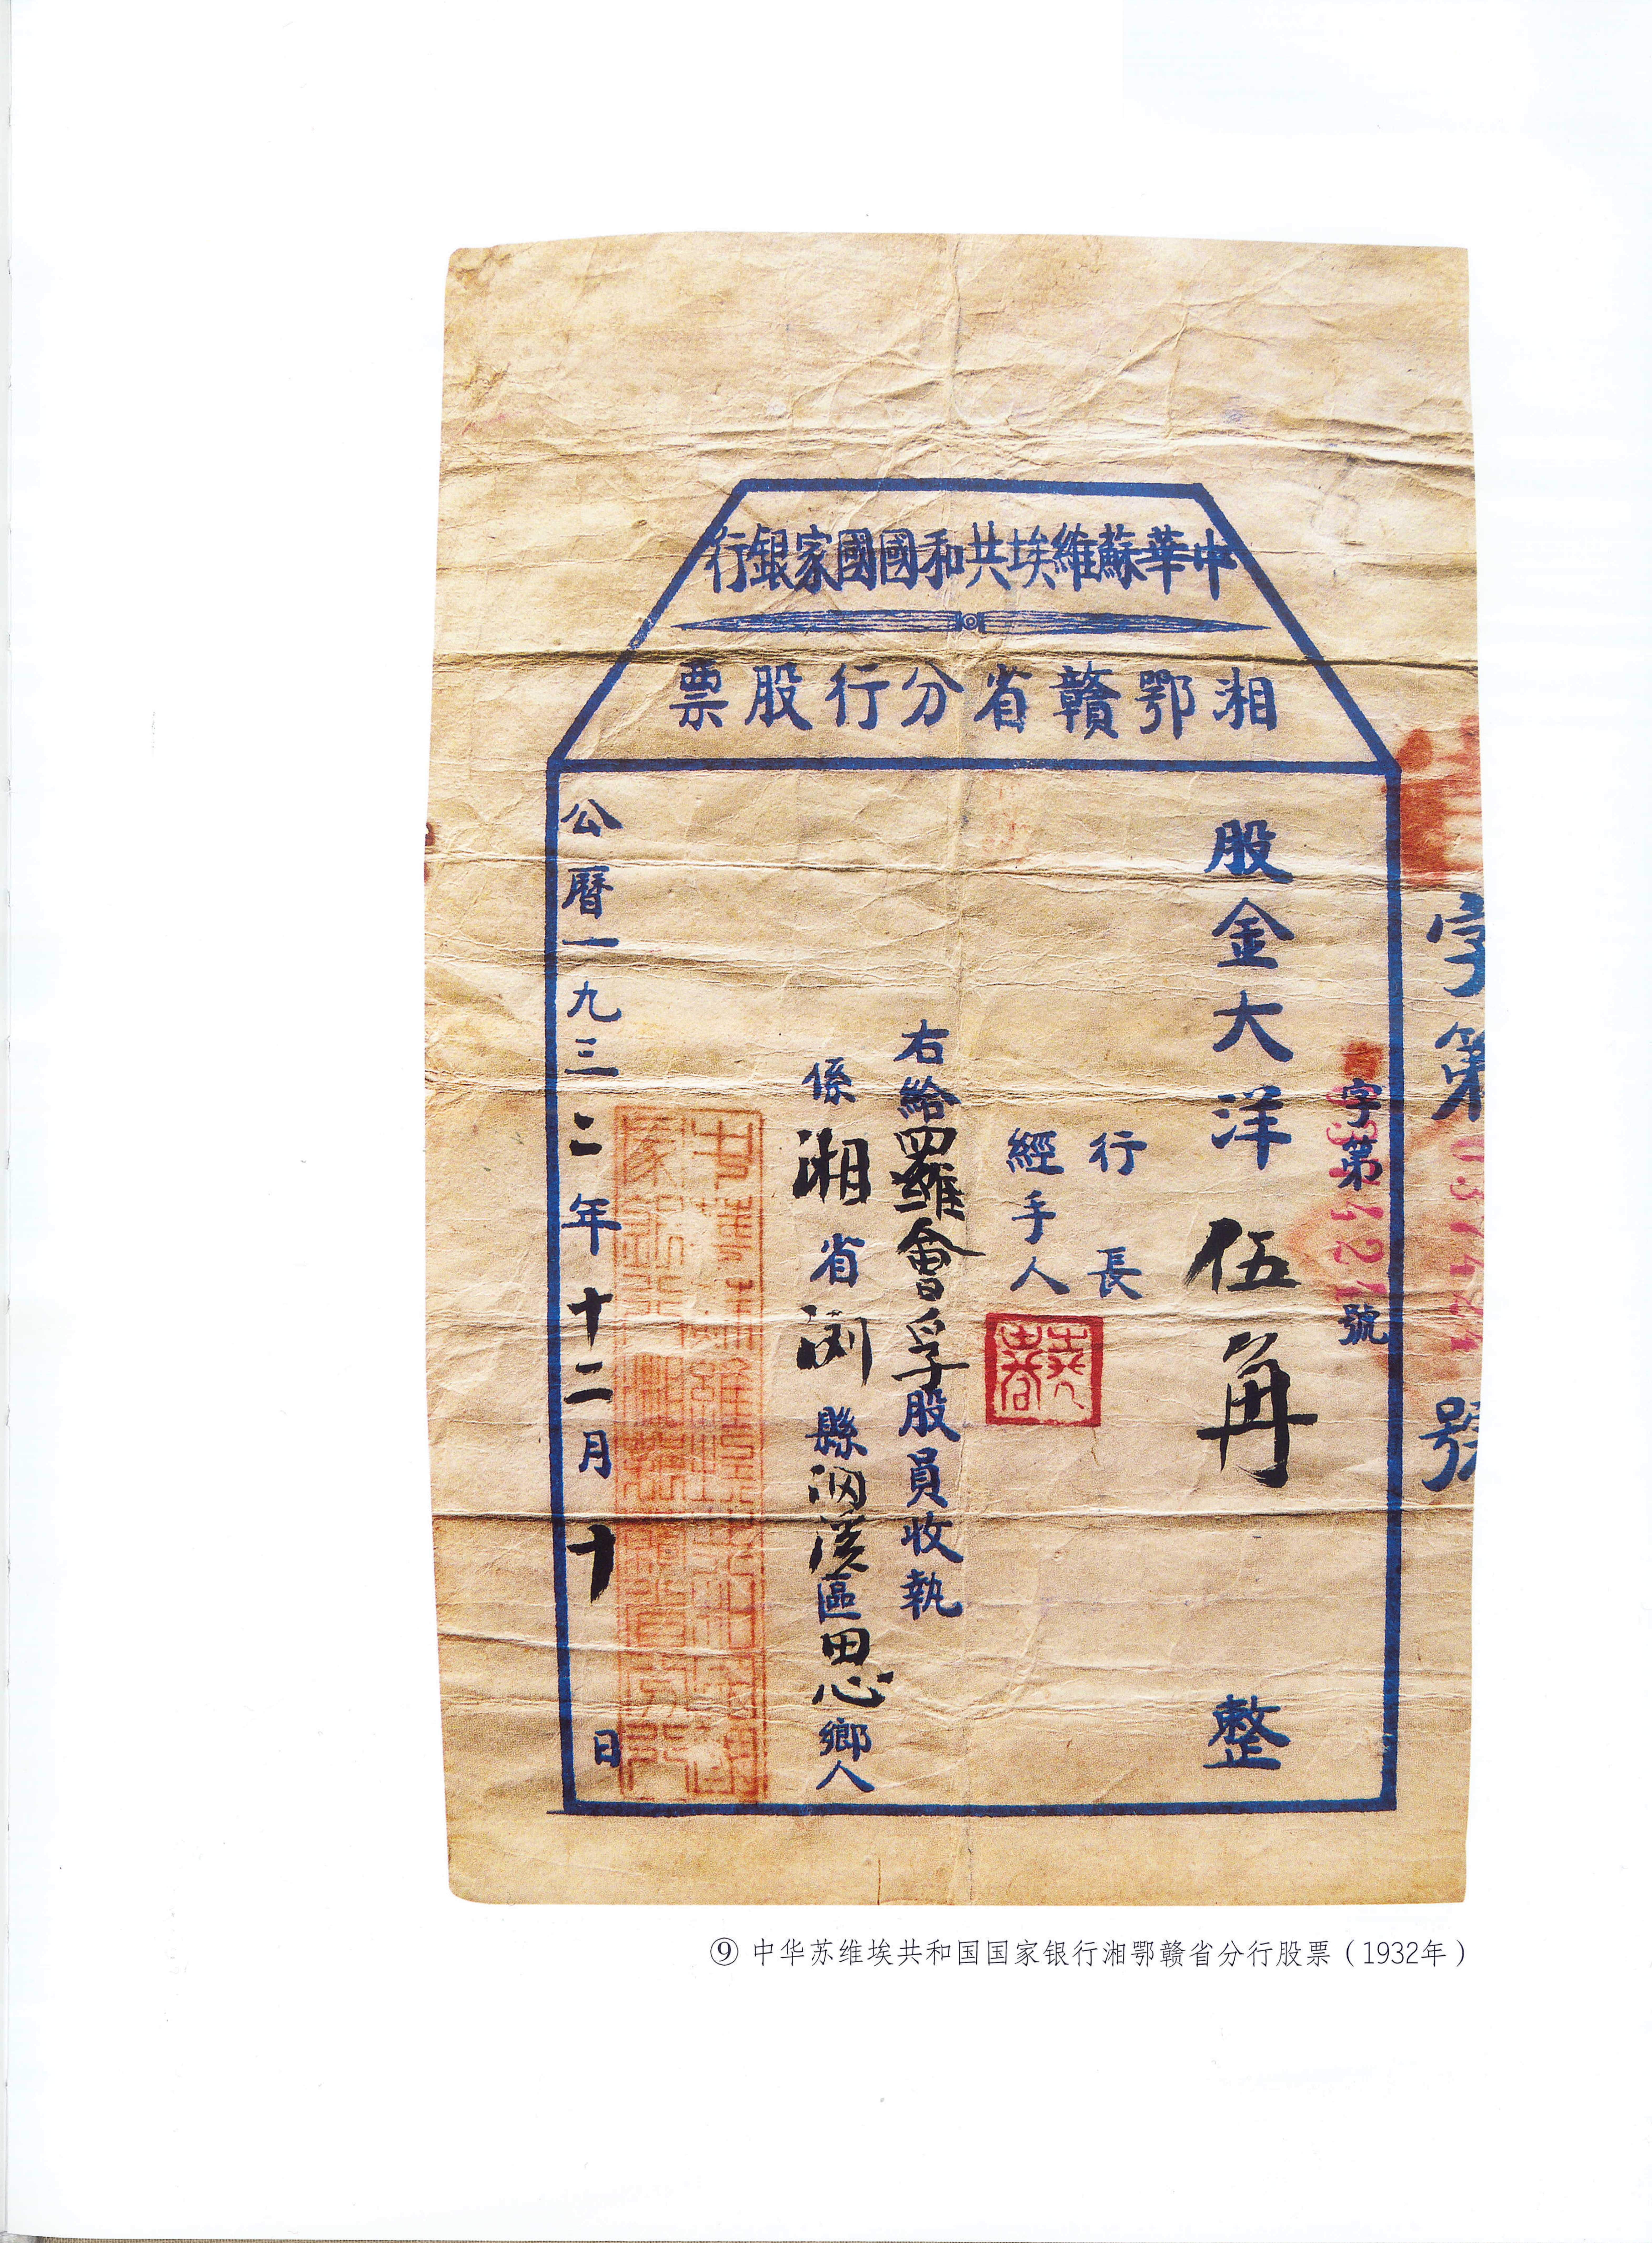 中華蘇維埃共和國國家銀行
湘鄂贛省分行股票
字第
號
字第
號
股金大洋伍角整
行長
經手人
右給羅會孚股員收執
係湘省浏縣洞溪區田心鄉人
公曆一九三二年十二月十日
⑨ 中华苏维埃共和国国家银行湘鄂赣省分行股票（1932年）